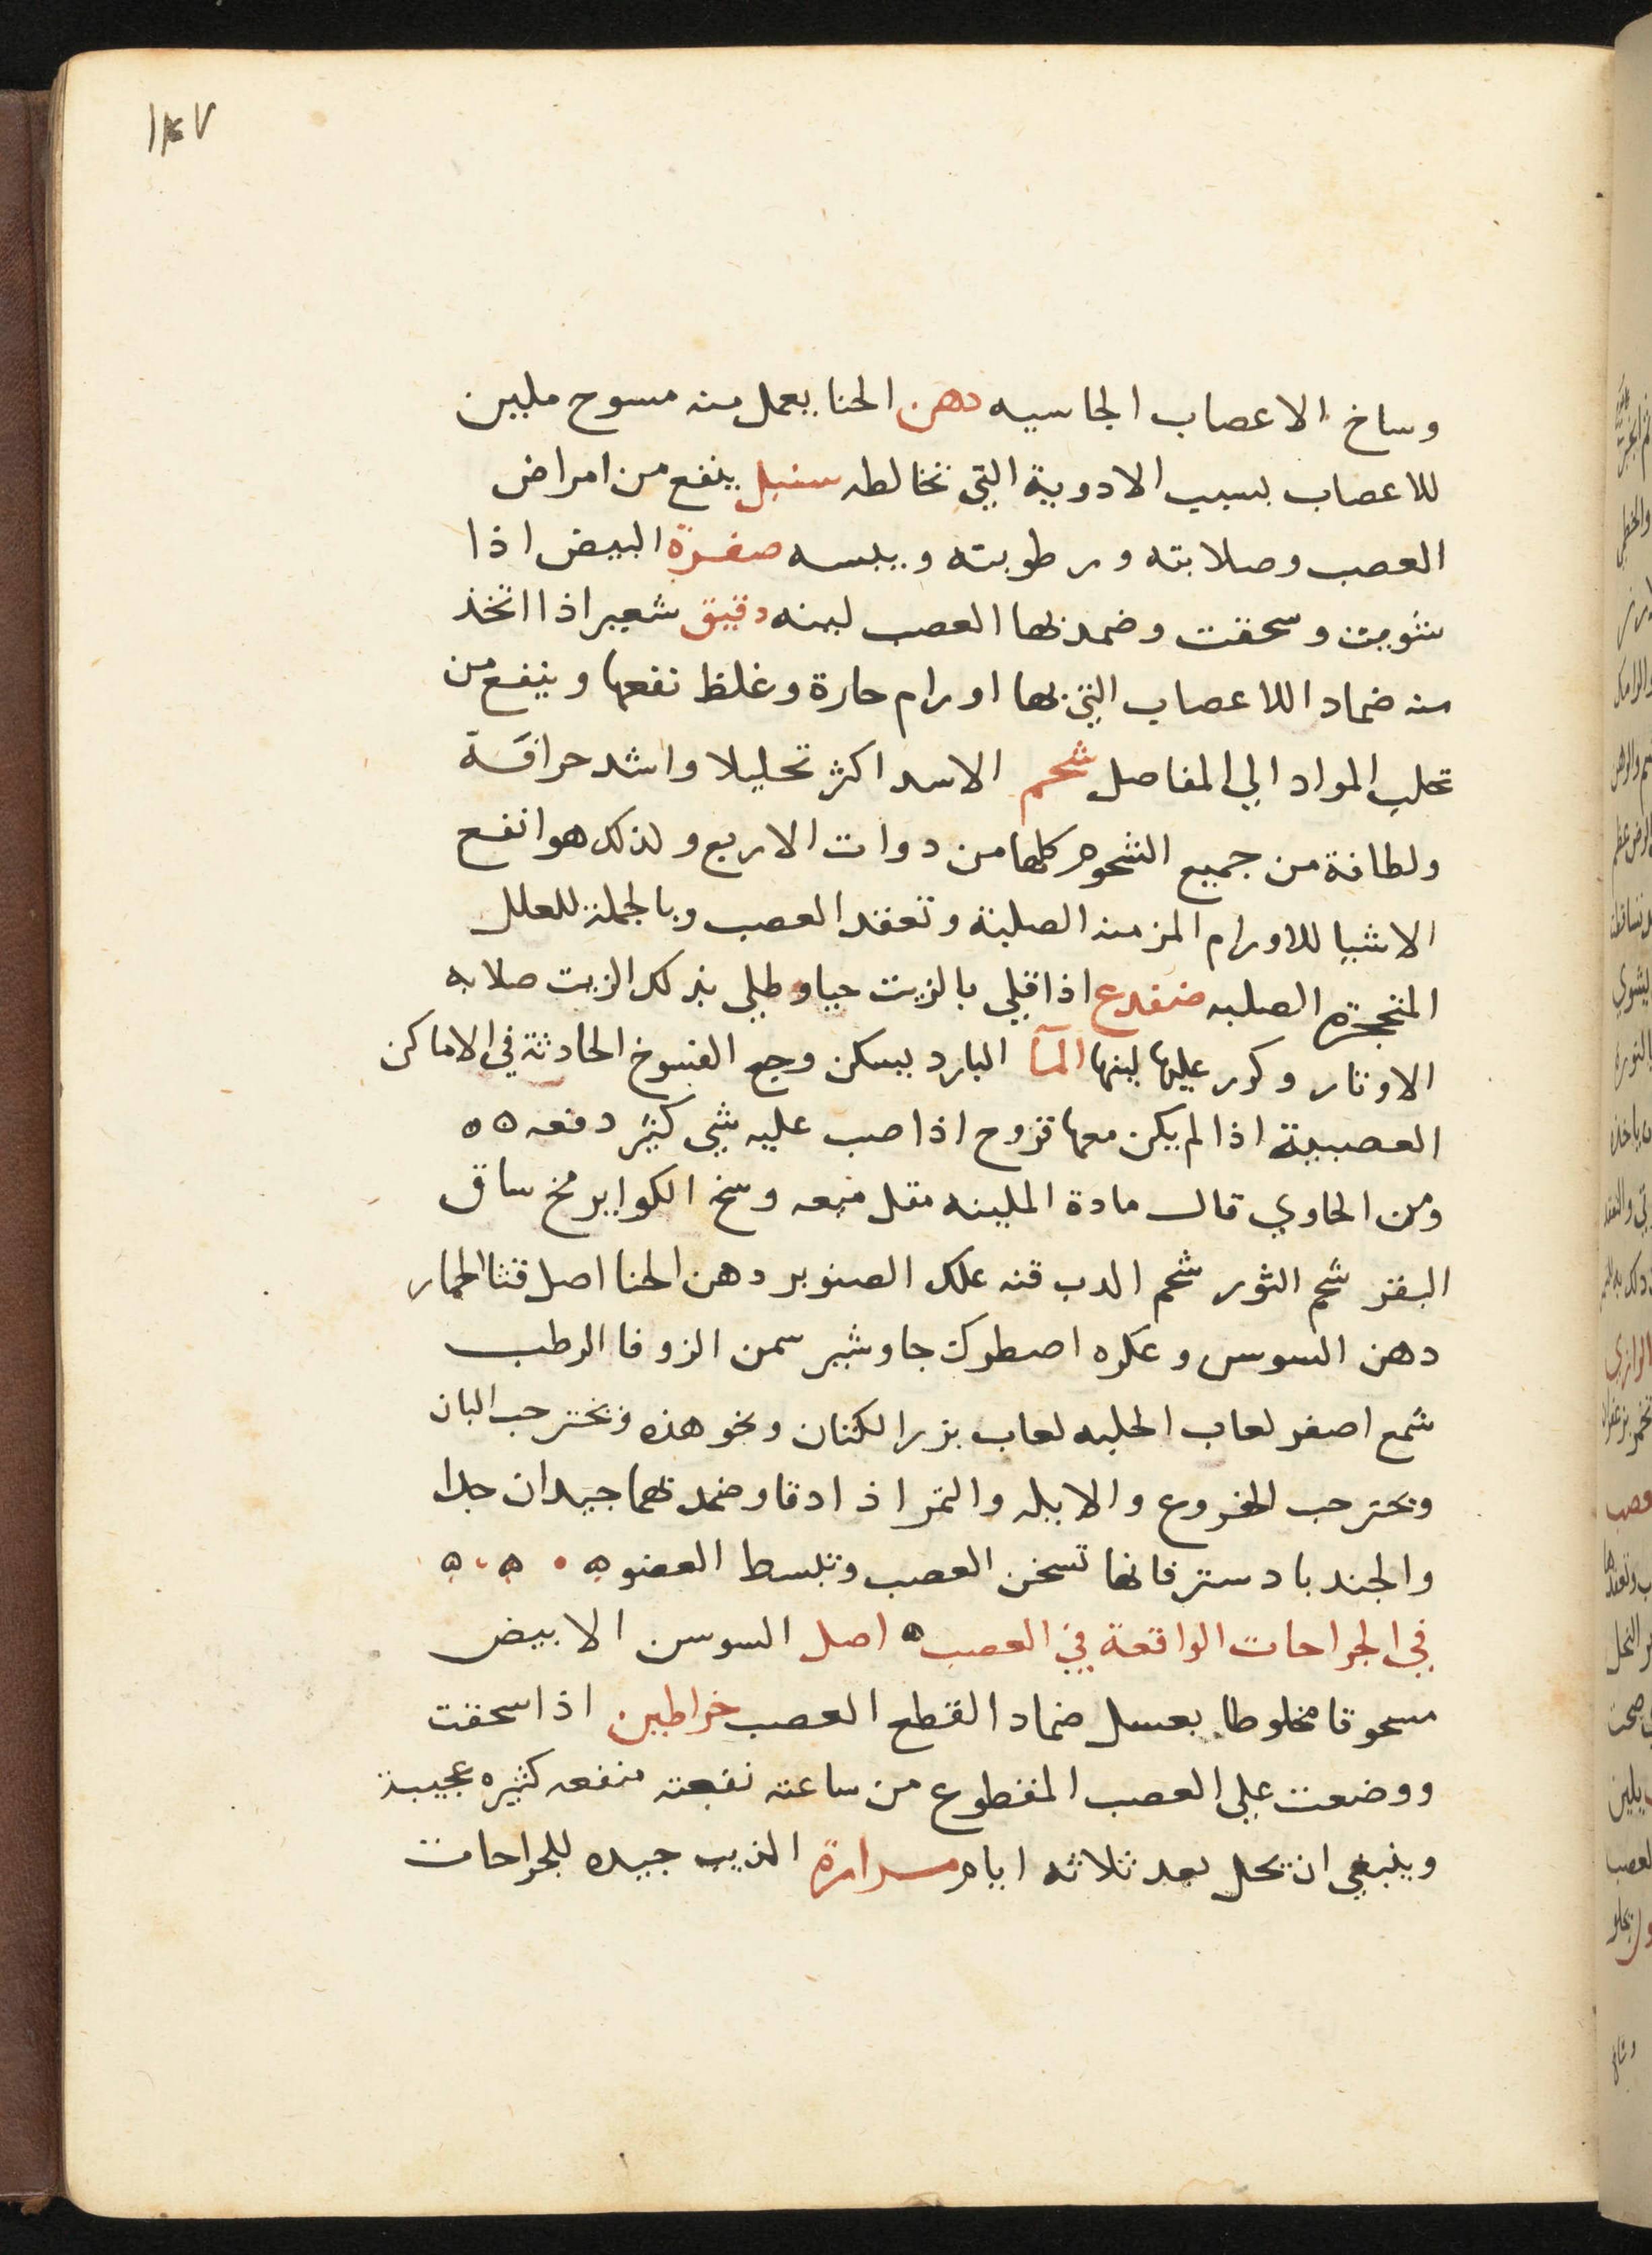 وساخ الاعصاب الجاسيه دهن الحنا يعمل منه مسوح ملين
للاعصاب بسبب الادوية التي تخالطه سنبل ينفع من امراض
العصب وصلابته ورطوبته ويبسه صفرة البيض اذا
شويت وسحقت وضمد بها العصب لينه دقيق شعير اذا اتخذ
منه ضماد اللاعصاب التي بها اورام حارة وغلظ نفعها وينفع من
تحلب المواد الي المفاصل شحم الاسد اكثر تحليلا واشد حرافة
ولطافة من جميع الشحوم كلها من دوات الاربع ولذلك هو انفع
الاشيا للاورام المزمنه الصلبة وتعقد العصب وبالجملة للعلل
المتحجرة الصلبه ضفدع اذا قلي بالزيت حيا وطلي بذلك الزيت صلابه
الاوتار وكرر عليها لينها المآ البارد يسكن وجع الفسوخ الحادثة في الاماكن
العصبية اذا لم يكن معها قروح اذا صب عليه شي كثير دفعه ه ه
ومن الحاوي قال مادة الملينه مقل ميعه وسخ الكواير مخ ساق
البقر شحم الثور شحم الدب قنه علك الصنوبر دهن الحنا اصل قثا الحمار
دهن السوسن وعكره اصطرك جاوشير سمن الزوفا الرطب
شمع اصفر لعاب الحلبه لعاب بزر الكتان ونحو هذه وبختر حب البان
وبختر حب الخروع والابيله والتمر اذا دقا وضمد بهما جيدان جدا
والجندبادستر فانها تسخن العصب وتبسط العضو ه ه ه
في الجراحات الواقعة في العصب ه اصل السوسن الابيض
مسحوقا مخلوطا بعسل ضماد القطع العصب خراطين اذا سحقت
ووضعت علي العصب المقطوع من ساعته نفعته منفعه كثيره عجيبة
وينبغي ان تحل بعد ثلاثه ايام مرارة الذيب جيده للجراحات